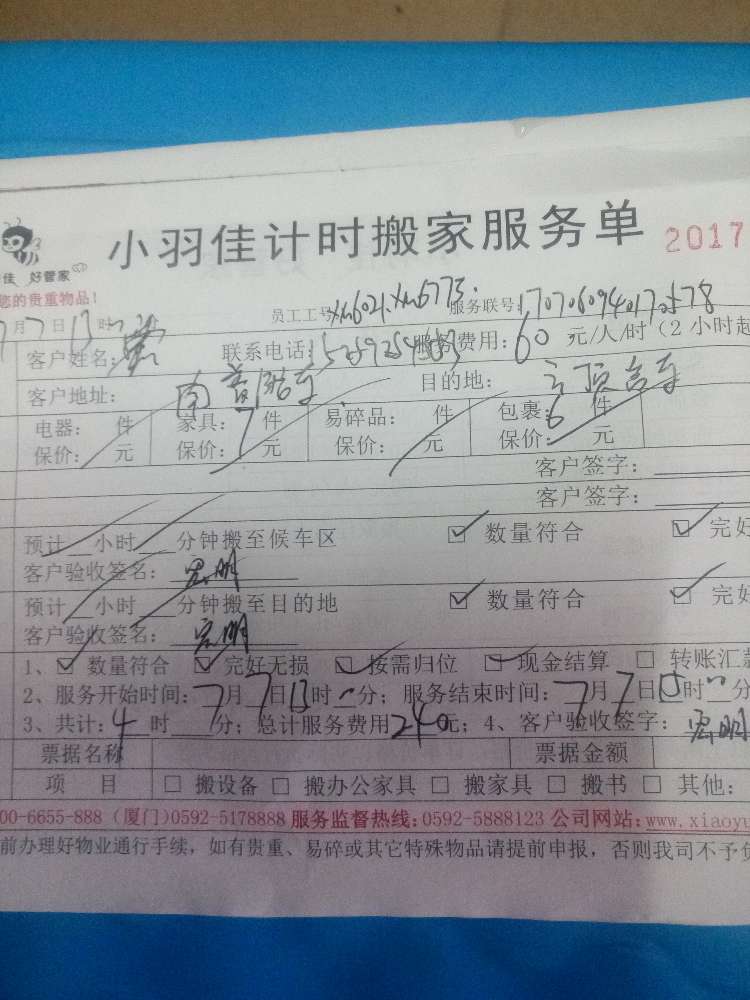 小羽佳计时搬家服务单 2017
佳 好管家
您的贵重物品!
7月7日13时
员工工号:xm6021.xm6773. 服务联号:
客户姓名: 联系电话: 服务费用:60元/人/时(2小时起
客户地址: 目的地:
电器: 件 家具:7件 易碎品: 包裹:6件
保价: 元 保价: 元 保价: 件 保价: 元
客户签字:
客户签字:
预计__小时__分钟搬至候车区 ☑ 数量符合 ☑ 完好
客户验收签名:宏明
预计__小时__分钟搬至目的地 ☑ 数量符合 ☑ 完好
客户验收签名:宏明
1、☑ 数量符合 ☑ 完好无损 ☑ 按需归位 ☑ 现金结算 □ 转账汇款
2、服务开始时间:7月7日13时 分;服务结束时间:7月7日15时 分
3、共计:4时 分;总计服务费用240元;4、客户验收签字:宏明
票据名称 票据金额
项 目 □ 搬设备 □ 搬办公家具 □ 搬家具 □ 搬书 □ 其他:
00-6655-888(厦门)0592-5178888 服务监督热线:0592-5888123 公司网站:www.xiaoyu
前办理好物业通行手续,如有贵重、易碎或其它特殊物品请提前申报,否则我司不予负